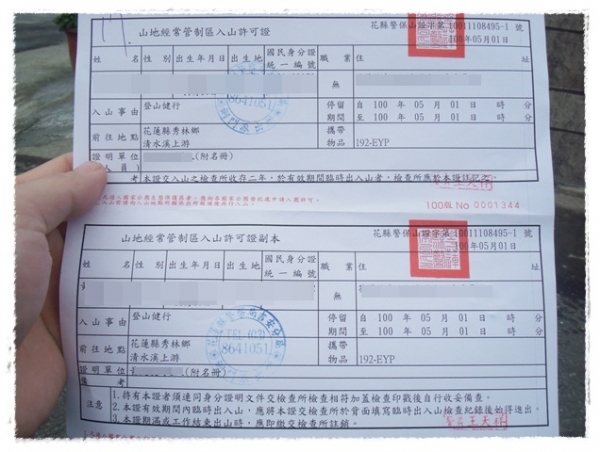 山地經常管制區入山許可證
花縣警保山證字第10011108495-1 號
100年05月01日
姓 名 性 別 出生年月日 出生地 國民身分證統一編號 職 業 住 址
無
入山事由 登山健行
停留期間 自 100 年 05 月 01 日 時 分
至 100 年 05 月 01 日 時 分
前往地點 花蓮縣秀林鄉
清水溪上游
攜帶物品 192-EYP
證明單位 (附名冊)
考 本證交入山之檢查所收存二年,於有效期間臨時出入山者,檢查所應於本證註記
100級 No 0001344
山地經常管制區入山許可證副本
花縣警保山證字第10011108495-1 號
100年05月01日
姓 名 性 別 出生年月日 出生地 國民身分證統一編號 職 業 住 址
無
入山事由 登山健行
TEL:(03)
8641051
停留期間 自 100 年 05 月 01 日 時 分
至 100 年 05 月 01 日 時 分
前往地點 花蓮縣秀林鄉
清水溪上游
攜帶物品 192-EYP
證明單位 (附名冊)
備 考
注意 1.持有本證者須連同身分證明文件交檢查所檢查相符加蓋檢查印戳後自行收妥備查。
2.本證有效期間內臨時出入山,應將本證交檢查所於背面填寫臨時出入山檢查紀錄後始得進出。
3.本證期滿或工作結束出山時,應即繳交檢查所註銷。